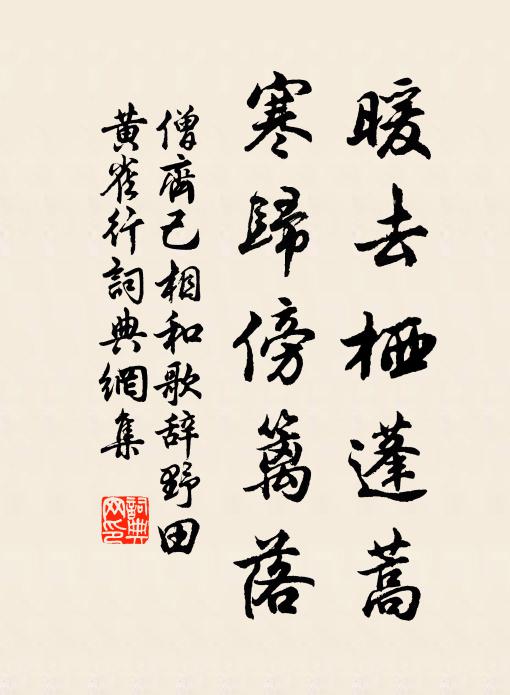 暖去栖蓬蒿
寒歸傍籬落
僧齊己相和歌辞野田
黄雀行詞典網集
詞典
网印